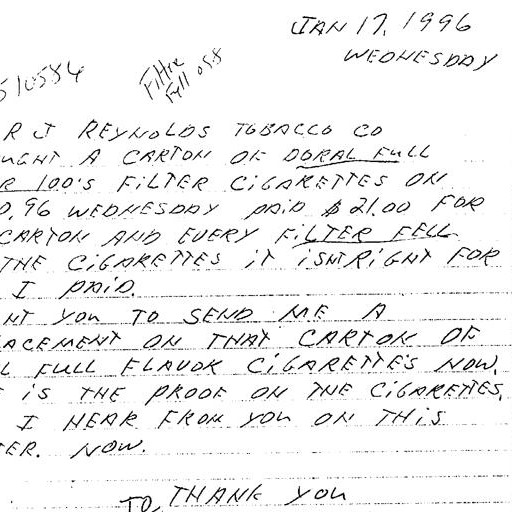 JAN 17, 1996
WEDNESDAY
510586
Filter
Fell off
R J REYNOLDS TOBACCO CO
UGHT A CARTON OF DORAL FULL
R 100'S FILTER CIGARETTES ON
0, 96 WEDNESDAY PAID $21.00 FOR
CARTON AND EVERY FILTER FELL
THE CIGARETTES IT ISNT RIGHT FOR
I PAID.
NT YOU TO SEND ME A
ACEMENT ON THAT CARTON OF
L FULL FLAVOR CIGARETTES NOW.
IS THE PROOF ON THE CIGARETTES.
I HEAR FROM YOU ON THIS
TER. NOW.
TO, THANK YOU